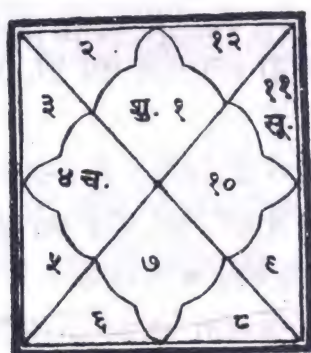 २ १२
३ शु. १ ११
सू.
४ च. १०
५ ७ ९
६ ८